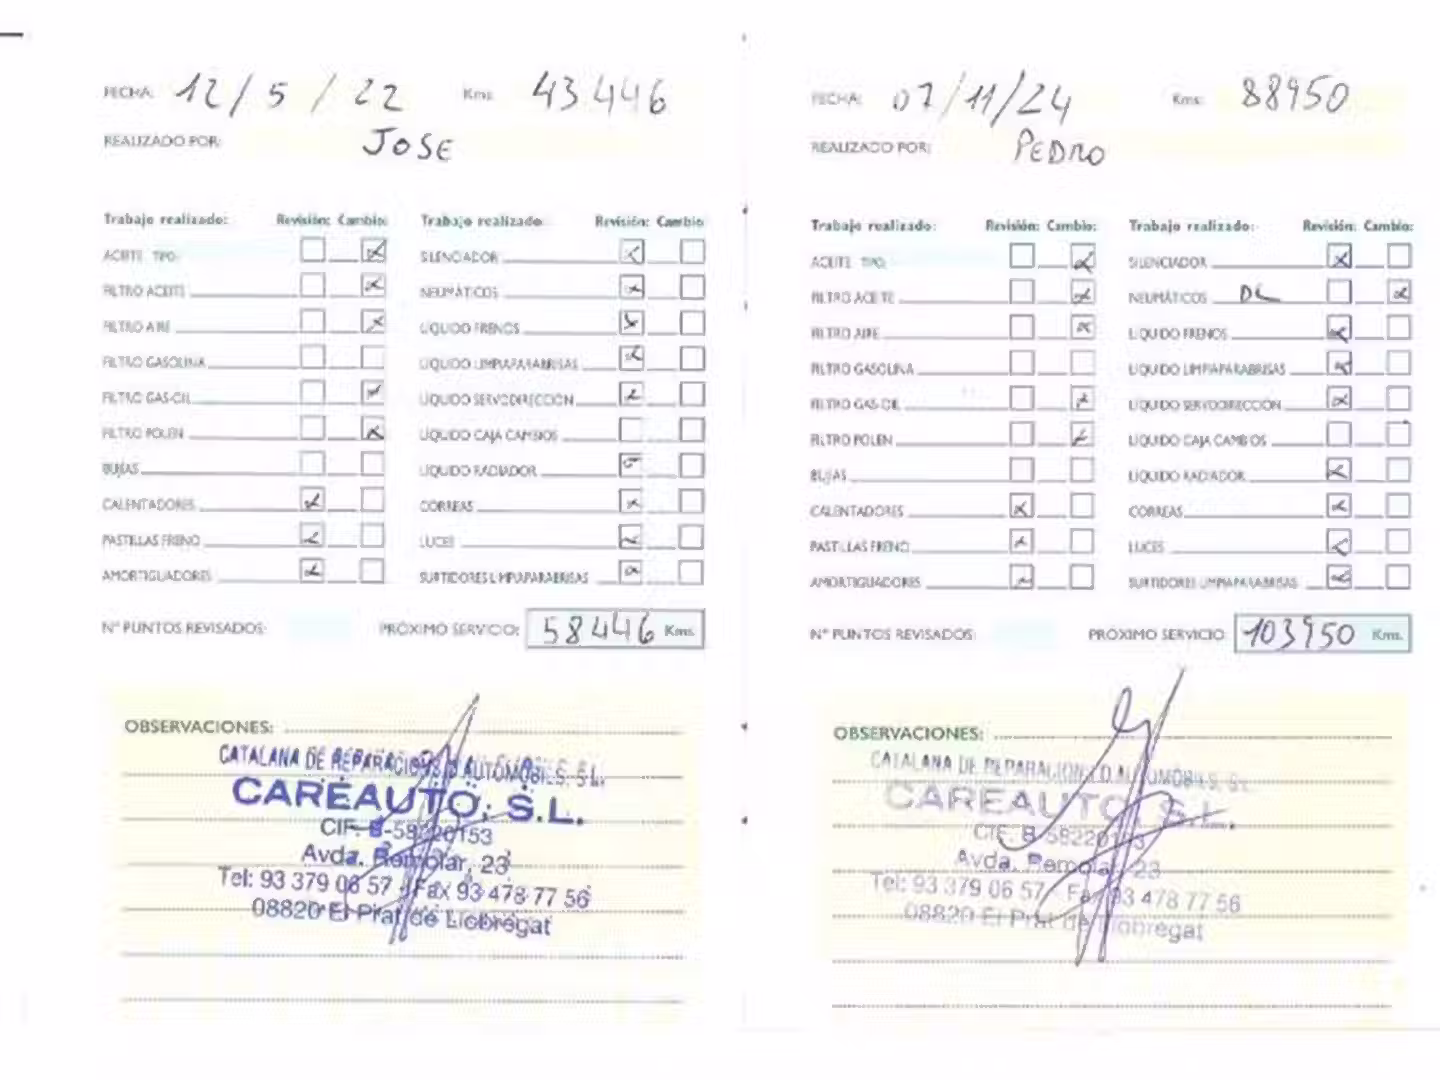 FECHA: 12/5/22 Kms: 43446
REALIZADO POR: JOSE
Trabajo realizado: Revisión: Cambio:
ACEITE TIPO:
FILTRO ACEITE
FILTRO AIRE
FILTRO GASOLINA
FILTRO GAS-OIL
FILTRO POLEN
BUJIAS
CALENTADORES
PASTILLAS FRENO
AMORTIGUADORES
Trabajo realizado: Revisión: Cambio:
SILENCIADOR
NEUMÁTICOS
LIQUIDO FRENOS
LIQUIDO LIMPIAPARABRISAS
LIQUIDO SERVODIRECCIÓN
LIQUIDO CAJA CAMBIOS
LIQUIDO RADIADOR
CORREAS
LUCES
SURTIDORES LIMPIAPARABRISAS
Nº PUNTOS REVISADOS: PRÓXIMO SERVICIO: 58446 Kms.
OBSERVACIONES:
CATALANA DE REPARACIONS D'AUTOMÒBILS, S.L.
CAREAUTO, S.L.
CIF. B-58220153
Avda. Remolar, 23
Tel: 93 379 06 57 - Fax 93 478 77 56
08820 El Prat de Llobregat
FECHA: 07/11/24 Kms: 88950
REALIZADO POR: PEDRO
Trabajo realizado: Revisión: Cambio:
ACEITE TIPO:
FILTRO ACEITE
FILTRO AIRE
FILTRO GASOLINA
FILTRO GAS-OIL
FILTRO POLEN
BUJIAS
CALENTADORES
PASTILLAS FRENO
AMORTIGUADORES
Trabajo realizado: Revisión: Cambio:
SILENCIADOR
NEUMÁTICOS
LIQUIDO FRENOS
LIQUIDO LIMPIAPARABRISAS
LIQUIDO SERVODIRECCIÓN
LIQUIDO CAJA CAMBIOS
LIQUIDO RADIADOR
CORREAS
LUCES
SURTIDORES LIMPIAPARABRISAS
Nº PUNTOS REVISADOS: PRÓXIMO SERVICIO: 103950 Kms.
OBSERVACIONES:
CATALANA DE REPARACIONS D'AUTOMÒBILS, S.L.
CAREAUTO, S.L.
CIF. B-58220153
Avda. Remolar, 23
Tel: 93 379 06 57 - Fax 93 478 77 56
08820 El Prat de Llobregat